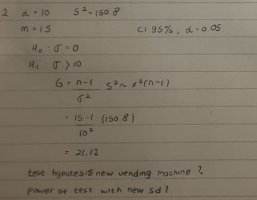 2 α = 10 S² = 150.8
n = 15 CI 95%, α = 0.05
H₀ : σ = 0
H₁ : σ > 10
G = n-1/σ² S² ~ x²(n-1)
= 15-1/10² (150.8)
= 21.12
test hypotesis new vending machine ?.
power of test with new sd ?